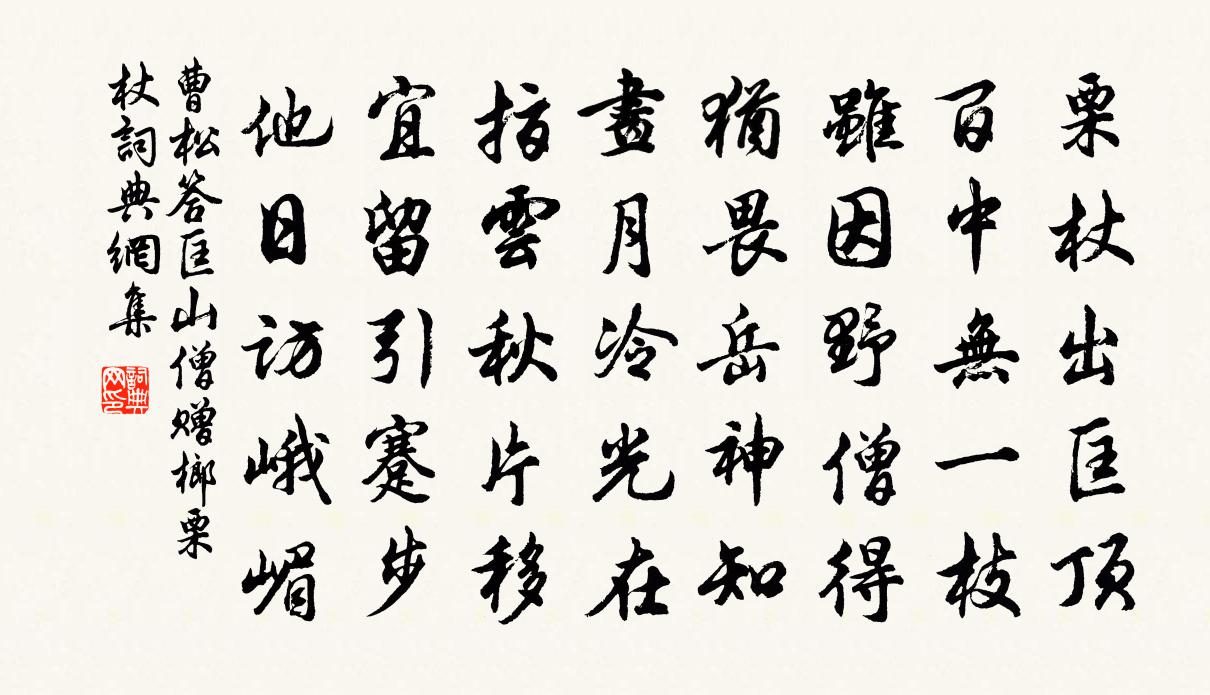 栗杖出匡頂
百中無一枝
雖因野僧得
猶畏岳神知
畫月冷光在
指雲秋片移
宜留引蹇步
他日訪峨嵋
曹松答匡山僧赠榔栗
杖詞典網集
詞典
网印